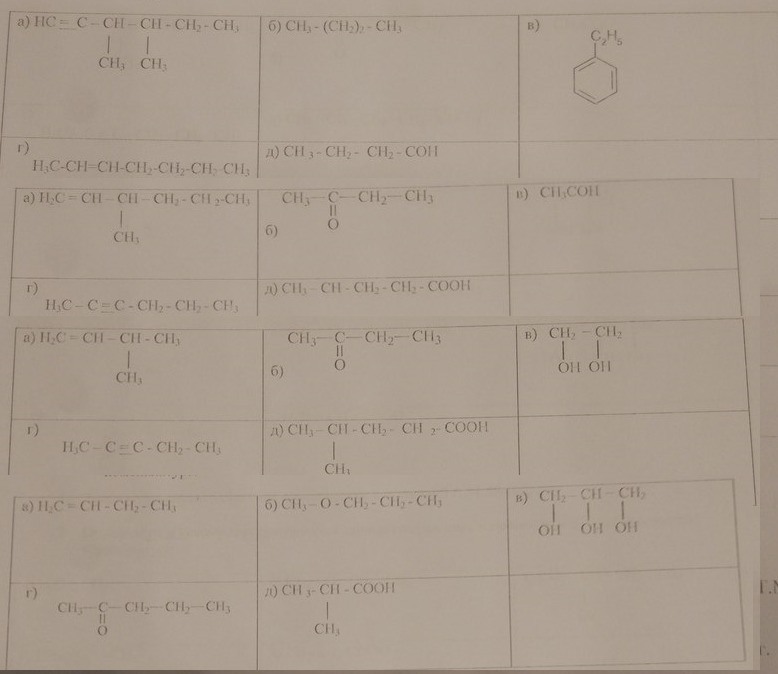 а) HC ≡ C – CH – CH - CH₂ - CH₃
CH₃ CH₃
б) CH₃ - (CH₂)₂ - CH₃
в)
C₂H₅
г)
H₃C-CH=CH-CH₂-CH₂-CH₂-CH₃
д) CH ₃ - CH₂ - CH₂ - COH
а) H₂C = CH – CH – CH₂ - CH ₂-CH₃
CH₃
CH₃—C—CH₂—CH₃
б) O
в) CH₃COH
г)
H₃C – C ≡ C - CH₂ - CH₂ - CH₃
д) CH₃ – CH - CH₂ - CH₂ - COOH
а) H₂C = CH – CH - CH₃
CH₃
CH₃—C—CH₂—CH₃
б) O
в) CH₂ – CH₂
OH OH
г)
H₃C – C ≡ C - CH₂ - CH₃
д) CH₃ – CH - CH₂ - CH ₂- COOH
CH₃
а) H₂C = CH - CH₂ - CH₃
б) CH₃ – O - CH₂ - CH₂ - CH₃
в) CH₂ – CH – CH₂
OH OH OH
г)
CH₃—C—CH₂—CH₂—CH₃
O
д) CH ₃- CH - COOH
CH₃